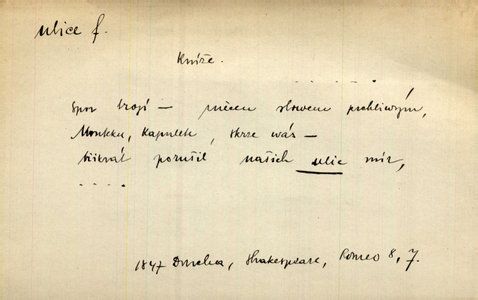 ulice f.
Kníže.
. . . . . .
Spor trojí — ničem slovem prchliwým,
Monteku, Kapulete, skrze wás —
třikrát porušil našich ulic mír,
. . . .
1847 Doucha, Shakespeare, Romeo 8, 7.